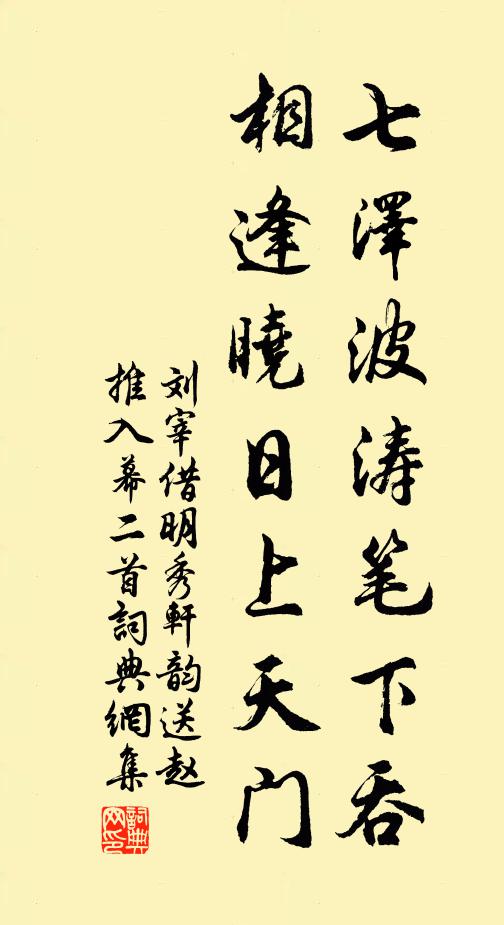 七澤波涛笔下吞
相逢曉日上天门
刘宰借明秀軒韵送赵
推入幕二首詞典網集
詞典网印